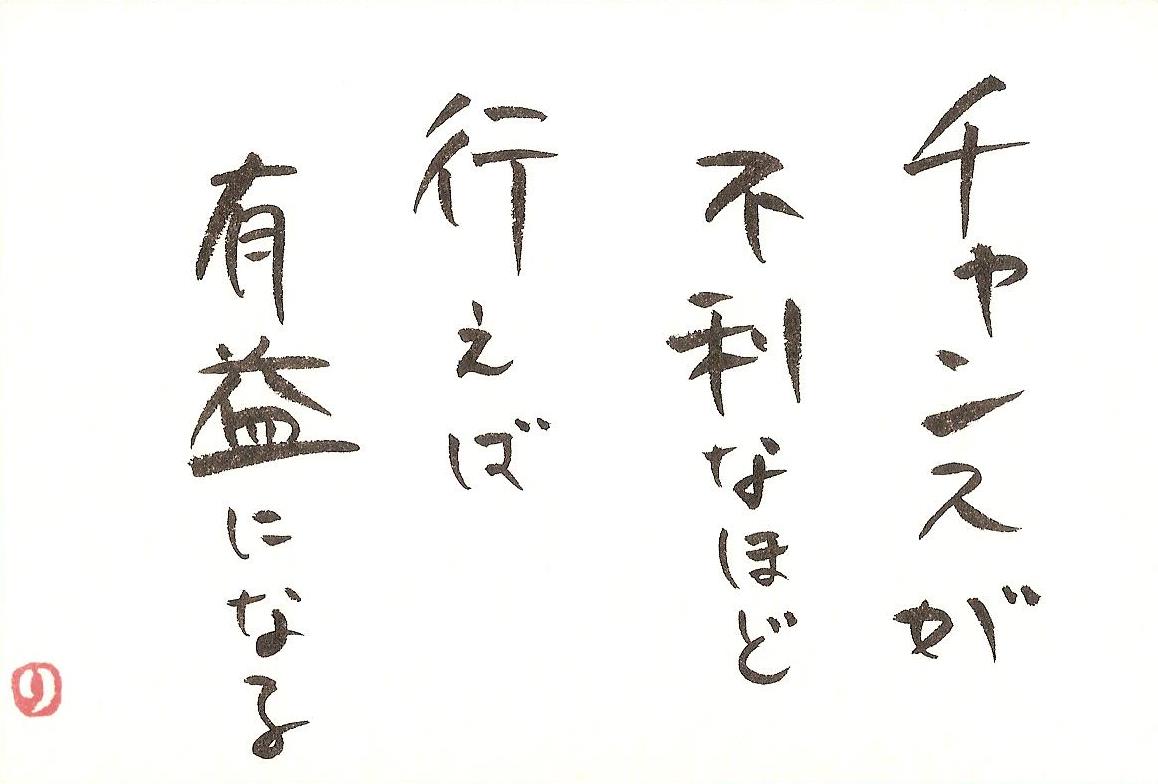 チャンスが
不利なほど
行えば
有益になる
の